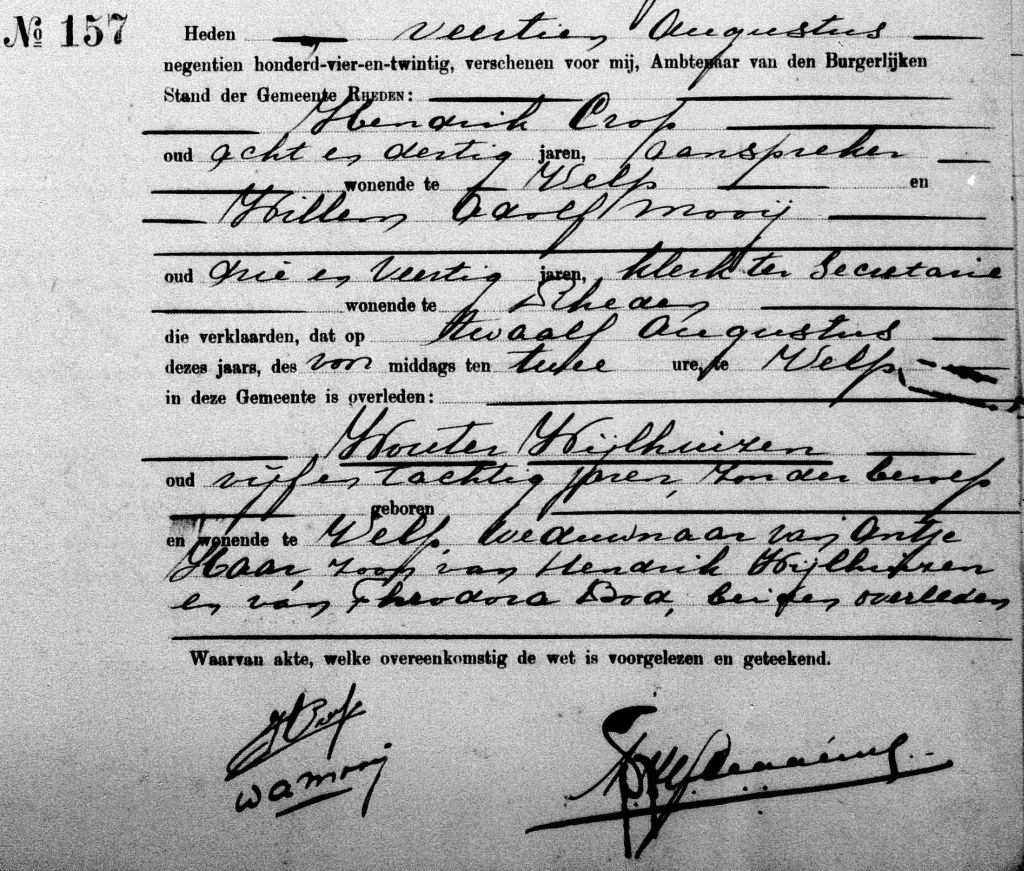 № 157
Heden veertien Augustus
negentien honderd-vier-en-twintig, verschenen voor mij, Ambtenaar van den Burgerlijken
Stand der Gemeente RHEDEN:
Hendrik Crop
oud acht en dertig jaren, aanspreker
wonende te Velp en
Willem Adolf Mooij
oud drie en veertig jaren, klerk ter Secretarie
wonende te Rheden
die verklaarden, dat op twaalf Augustus
dezes jaars, des voor middags ten twee ure, te Velp
in deze Gemeente is overleden:
Wouter Wijlhuizen
oud vijf en tachtig jaren, zonder beroep
geboren
en wonende te Velp, weduwnaar van Antje
Haar, zoon van Hendrik Wijlhuizen
en van Theodora Bod, beiden overleden
Waarvan akte, welke overeenkomstig de wet is voorgelezen en geteekend.
HCrop
W A Mooij